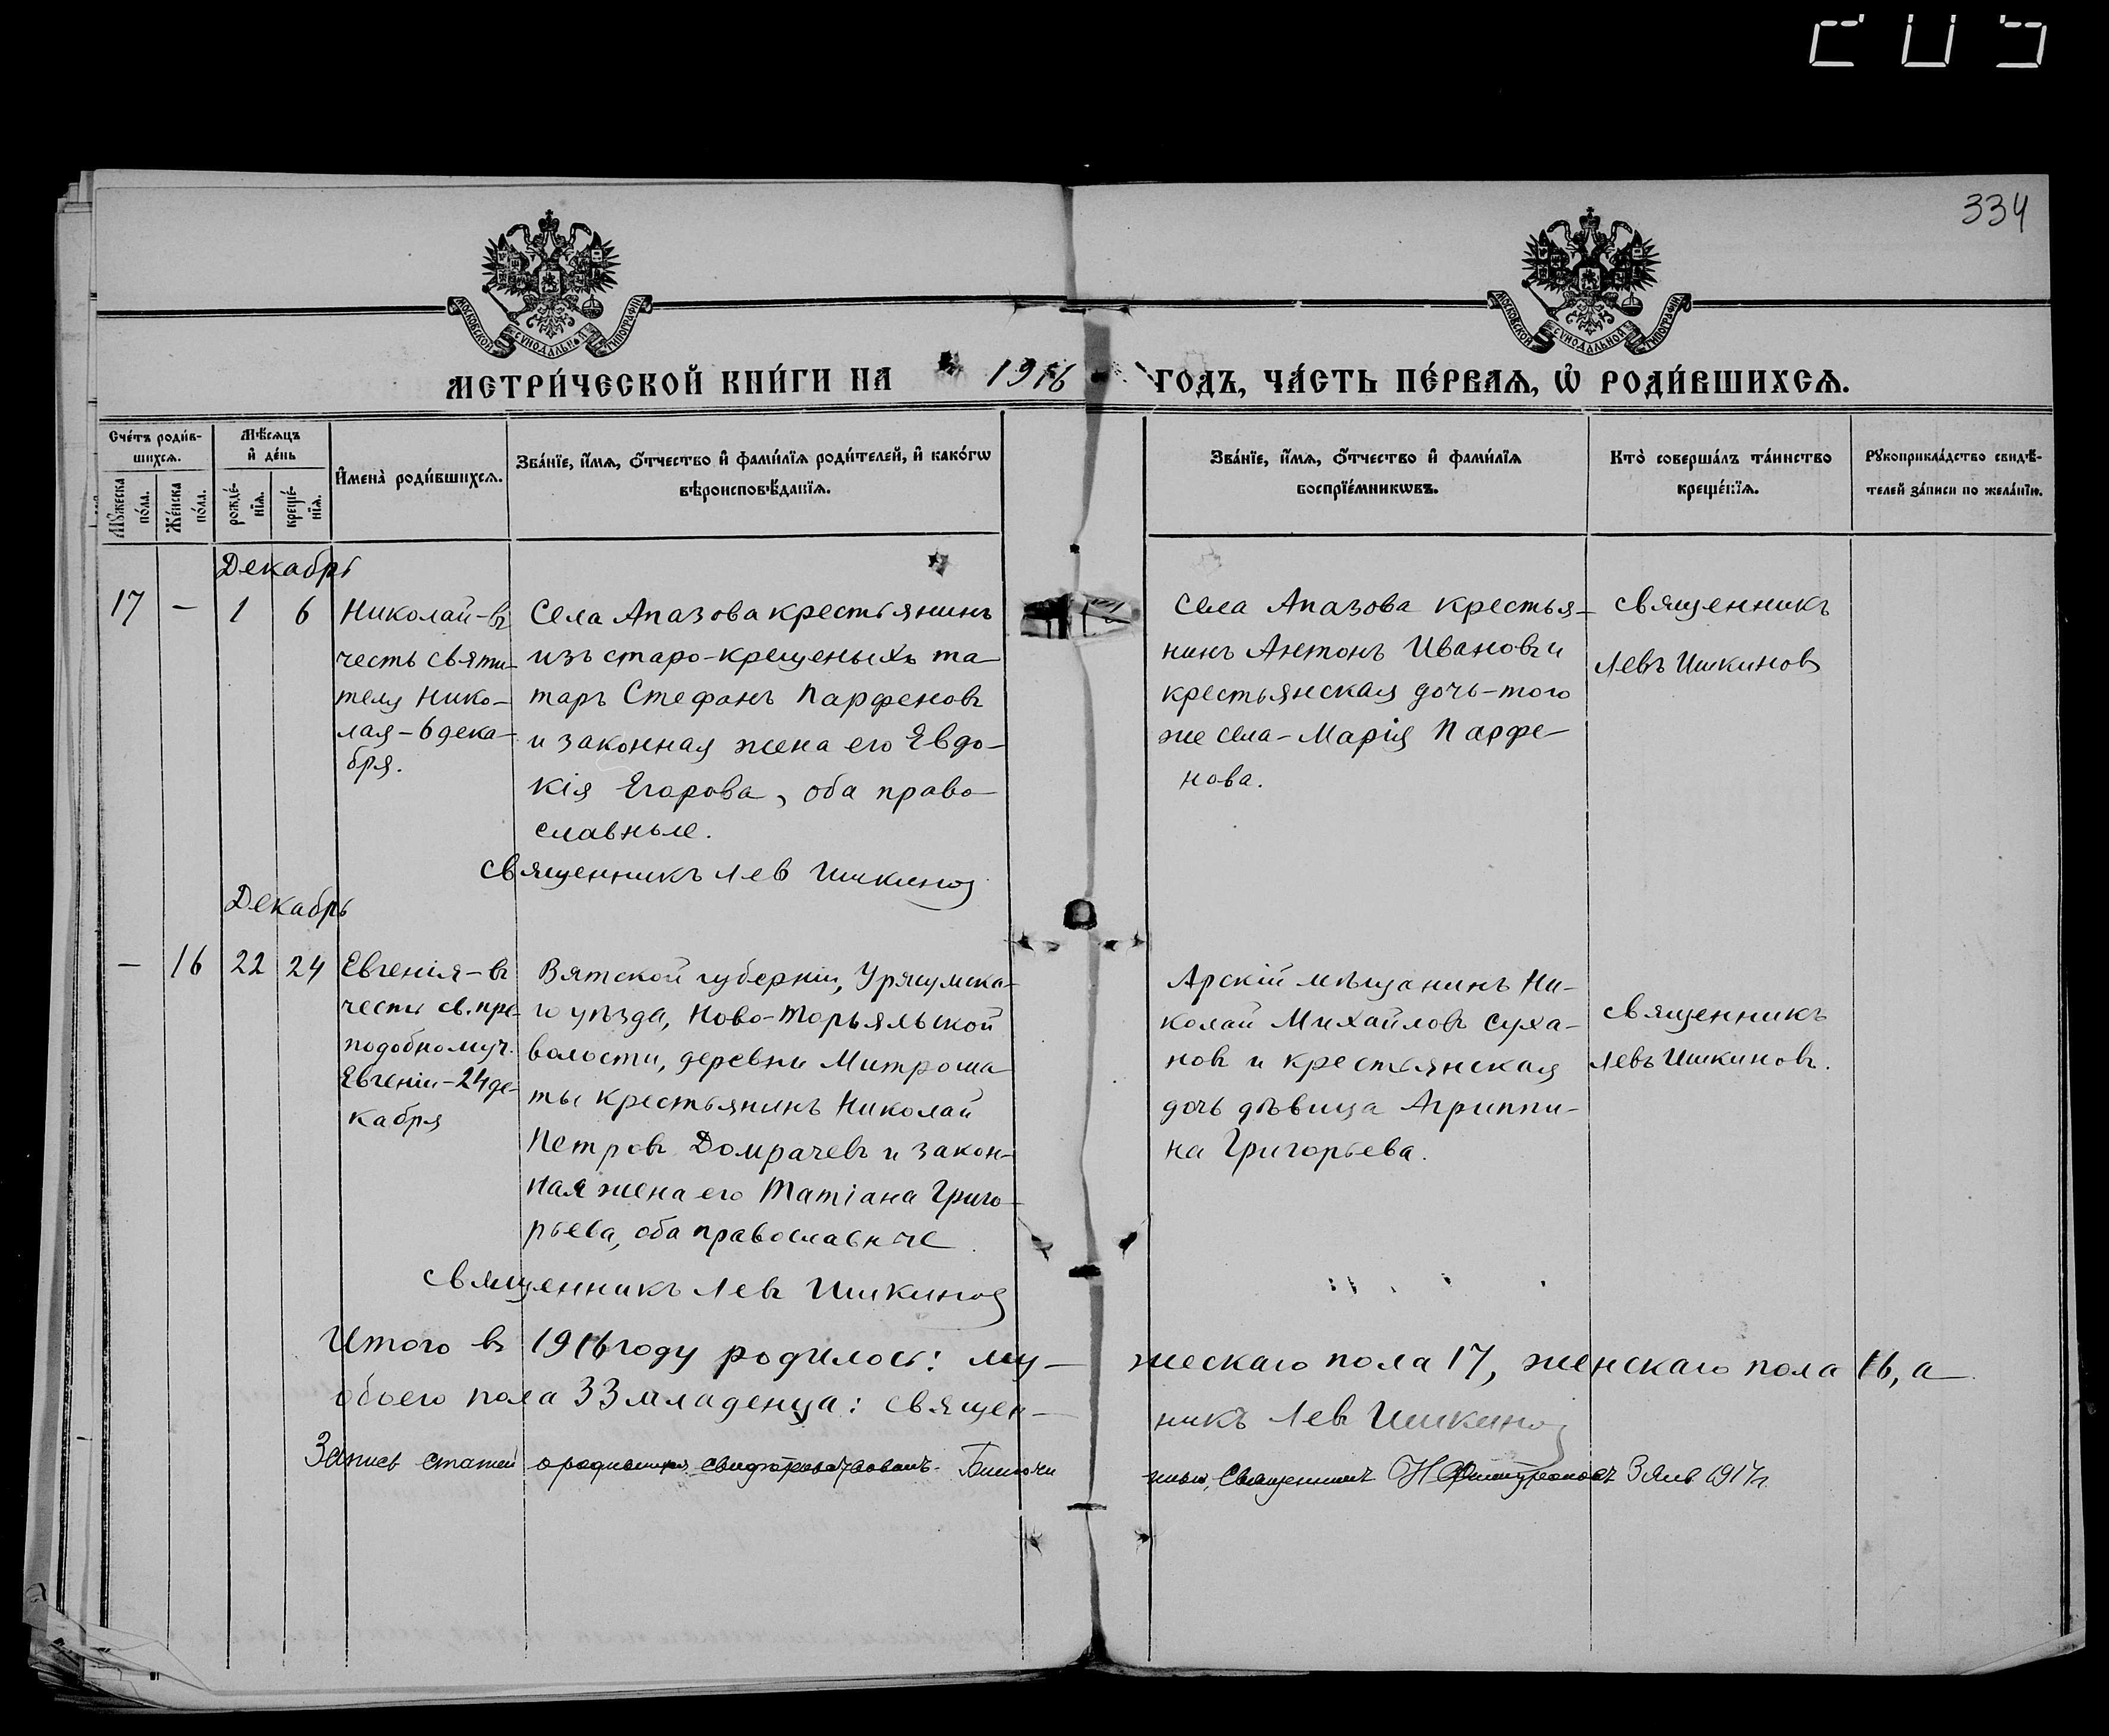 205
334
МОСКОВСКОЙ СУНОДАЛЬНОЙ ТИПОГРАФІИ
МОСКОВСКОЙ СУНОДАЛЬНОЙ ТИПОГРАФІИ
МЕТРИ́ЧЕСКОЙ КНИ́ГИ НА 1916 ГОДЪ, ЧА́СТЬ ПЕ́РВАѦ, Ѽ РОДИ́ВШИХСѦ.
Сче́тъ роди́в-
шихсѧ.
Мꙋ́жеска
по́ла.
Же́нска
по́ла.
Мѣ́сѧцъ
и҆ де́нь
рожде́-
нїѧ.
креще́-
нїѧ.
И҆мена̀ роди́вшихсѧ.
Зва́нїе, и҆́мѧ, ѻ҆́тчество и҆ фами́лїѧ роди́телей, и҆ како́гѡ
вѣроисповѣ́данїѧ.
Зва́нїе, и҆́мѧ, ѻ҆́тчество и҆ фами́лїѧ
воспрїе́мникѡвъ.
Кто̀ соверша́лъ та́инство
креще́нїѧ.
Рꙋкоприкла́дство свидѣ́-
телей за́писи по жела́нїю.
Декабрь
17 — 1 6
Николай-въ
честь святи-
теля Нико-
лая-6 дека-
бря.
Села Апазова крестьянинъ
изъ старо-крещеныхъ та-
таръ Стефанъ Парфеновъ
и законная жена его Евдо-
кія Егорова, оба право-
славные.
Села Апазова крестья-
нинъ Антонъ Ивановъ и
крестьянская дочь-того
же села-Марія Парфе-
нова.
священникъ
Левъ Ишкиновъ
священникъ Левъ Ишкиновъ
Декабрь
— 16 22 24
Евгенія-въ
честь св. пре-
подобномуч.
Евгеніи-24 де-
кабря
Вятской губерніи, Уржумска-
го уѣзда, Ново-Торъяльской
волости, деревни Митроша-
ты крестьянинъ Николай
Петровъ Домрачевъ и закон-
ная жена его Татіана Григо-
рьева, оба православные.
Арскій мѣщанинъ Ни-
колай Михайловъ Суха-
новъ и крестьянская
дочь дѣвица Агриппи-
на Григорьева.
священникъ
Левъ Ишкиновъ.
священникъ Левъ Ишкиновъ
Итого въ 1916 году родилось: му- жескаго пола 17, женскаго пола 16, а
обоего пола 33 младенца: священ- никъ Левъ Ишкиновъ
Запись статей о родившихся свидѣтельствовалъ Благочин- ный, Священникъ Н 3 Янв 1917 г.